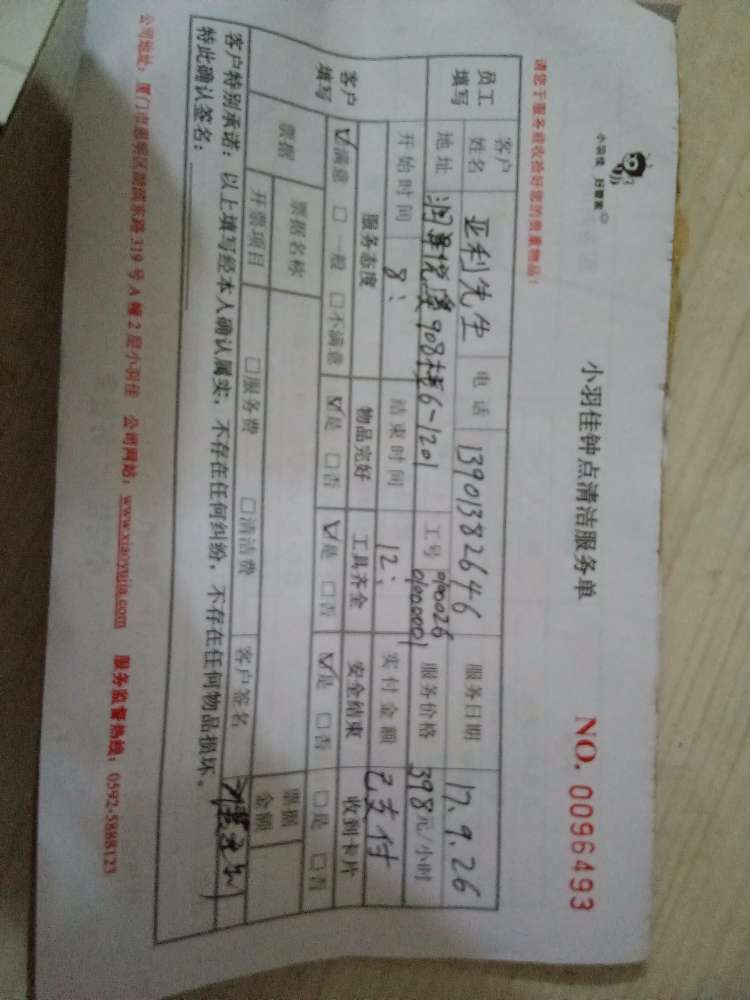 小羽佳 好管家
小羽佳钟点清洁服务单
NO. 0096493
请您于服务前收拾好您的贵重物品！
员工填写
客户姓名 亚利先生 电话 13901382646 服务日期 17.9.26
地址 908楼6-1201 工号 0100026 0100001 服务价格 398元/小时
开始时间 8: 结束时间 12: 实付金额 已支付
客户填写
服务态度 物品完好 工具齐全 安全结束 收到卡片
☑满意 □一般 □不满意 ☑是 □否 ☑是 □否 ☑是 □否 □是 □否
票据 票据名称 票据金额
开票项目 □服务费 □清洁费 客户签名
客户特别承诺：以上填写经本人确认属实，不存在任何纠纷，不存在任何物品损坏。
特此确认签名：
公司地址：厦门市思明区湖滨东路319号A幢2层小羽佳 公司网站：www.xiaoyujia.com 服务监督热线：0592-5888123